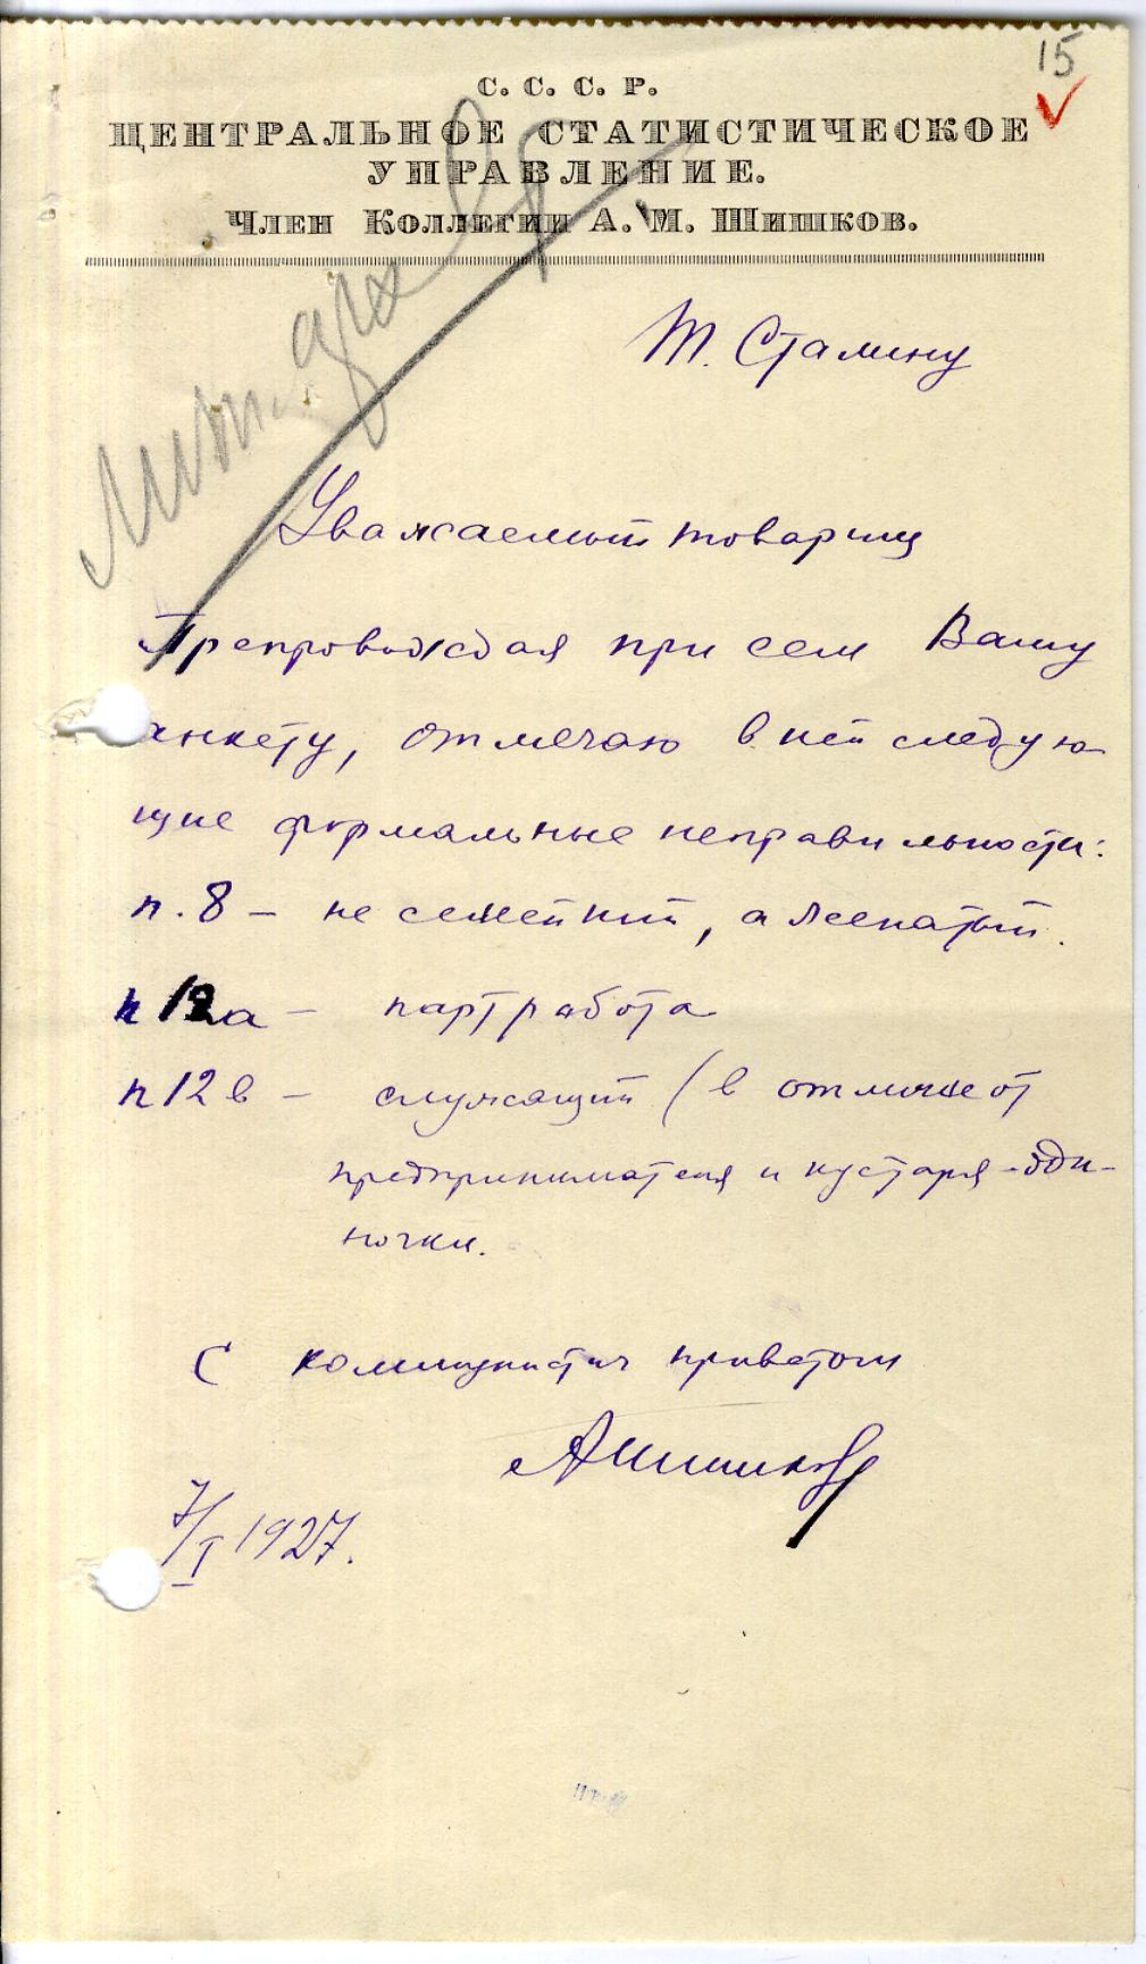 15
С. С. С. Р.
ЦЕНТРАЛЬНОЕ СТАТИСТИЧЕСКОЕ
УПРАВЛЕНИЕ.
Член Коллегии А. М. Шишков.
Мой арх
Т. Сталину
Уважаемый товарищ
Препровождая при сем Вашу
анкету, отмечаю в ней следую-
щие формальные неправильности:
п. 8 – не семейный, а женатый.
п 12а – партработа
п 12 в – служащий (в отличие от
предпринимателя и кустаря-оди-
ночки.
С коммунистич приветом
АШишков
7/I 1927.